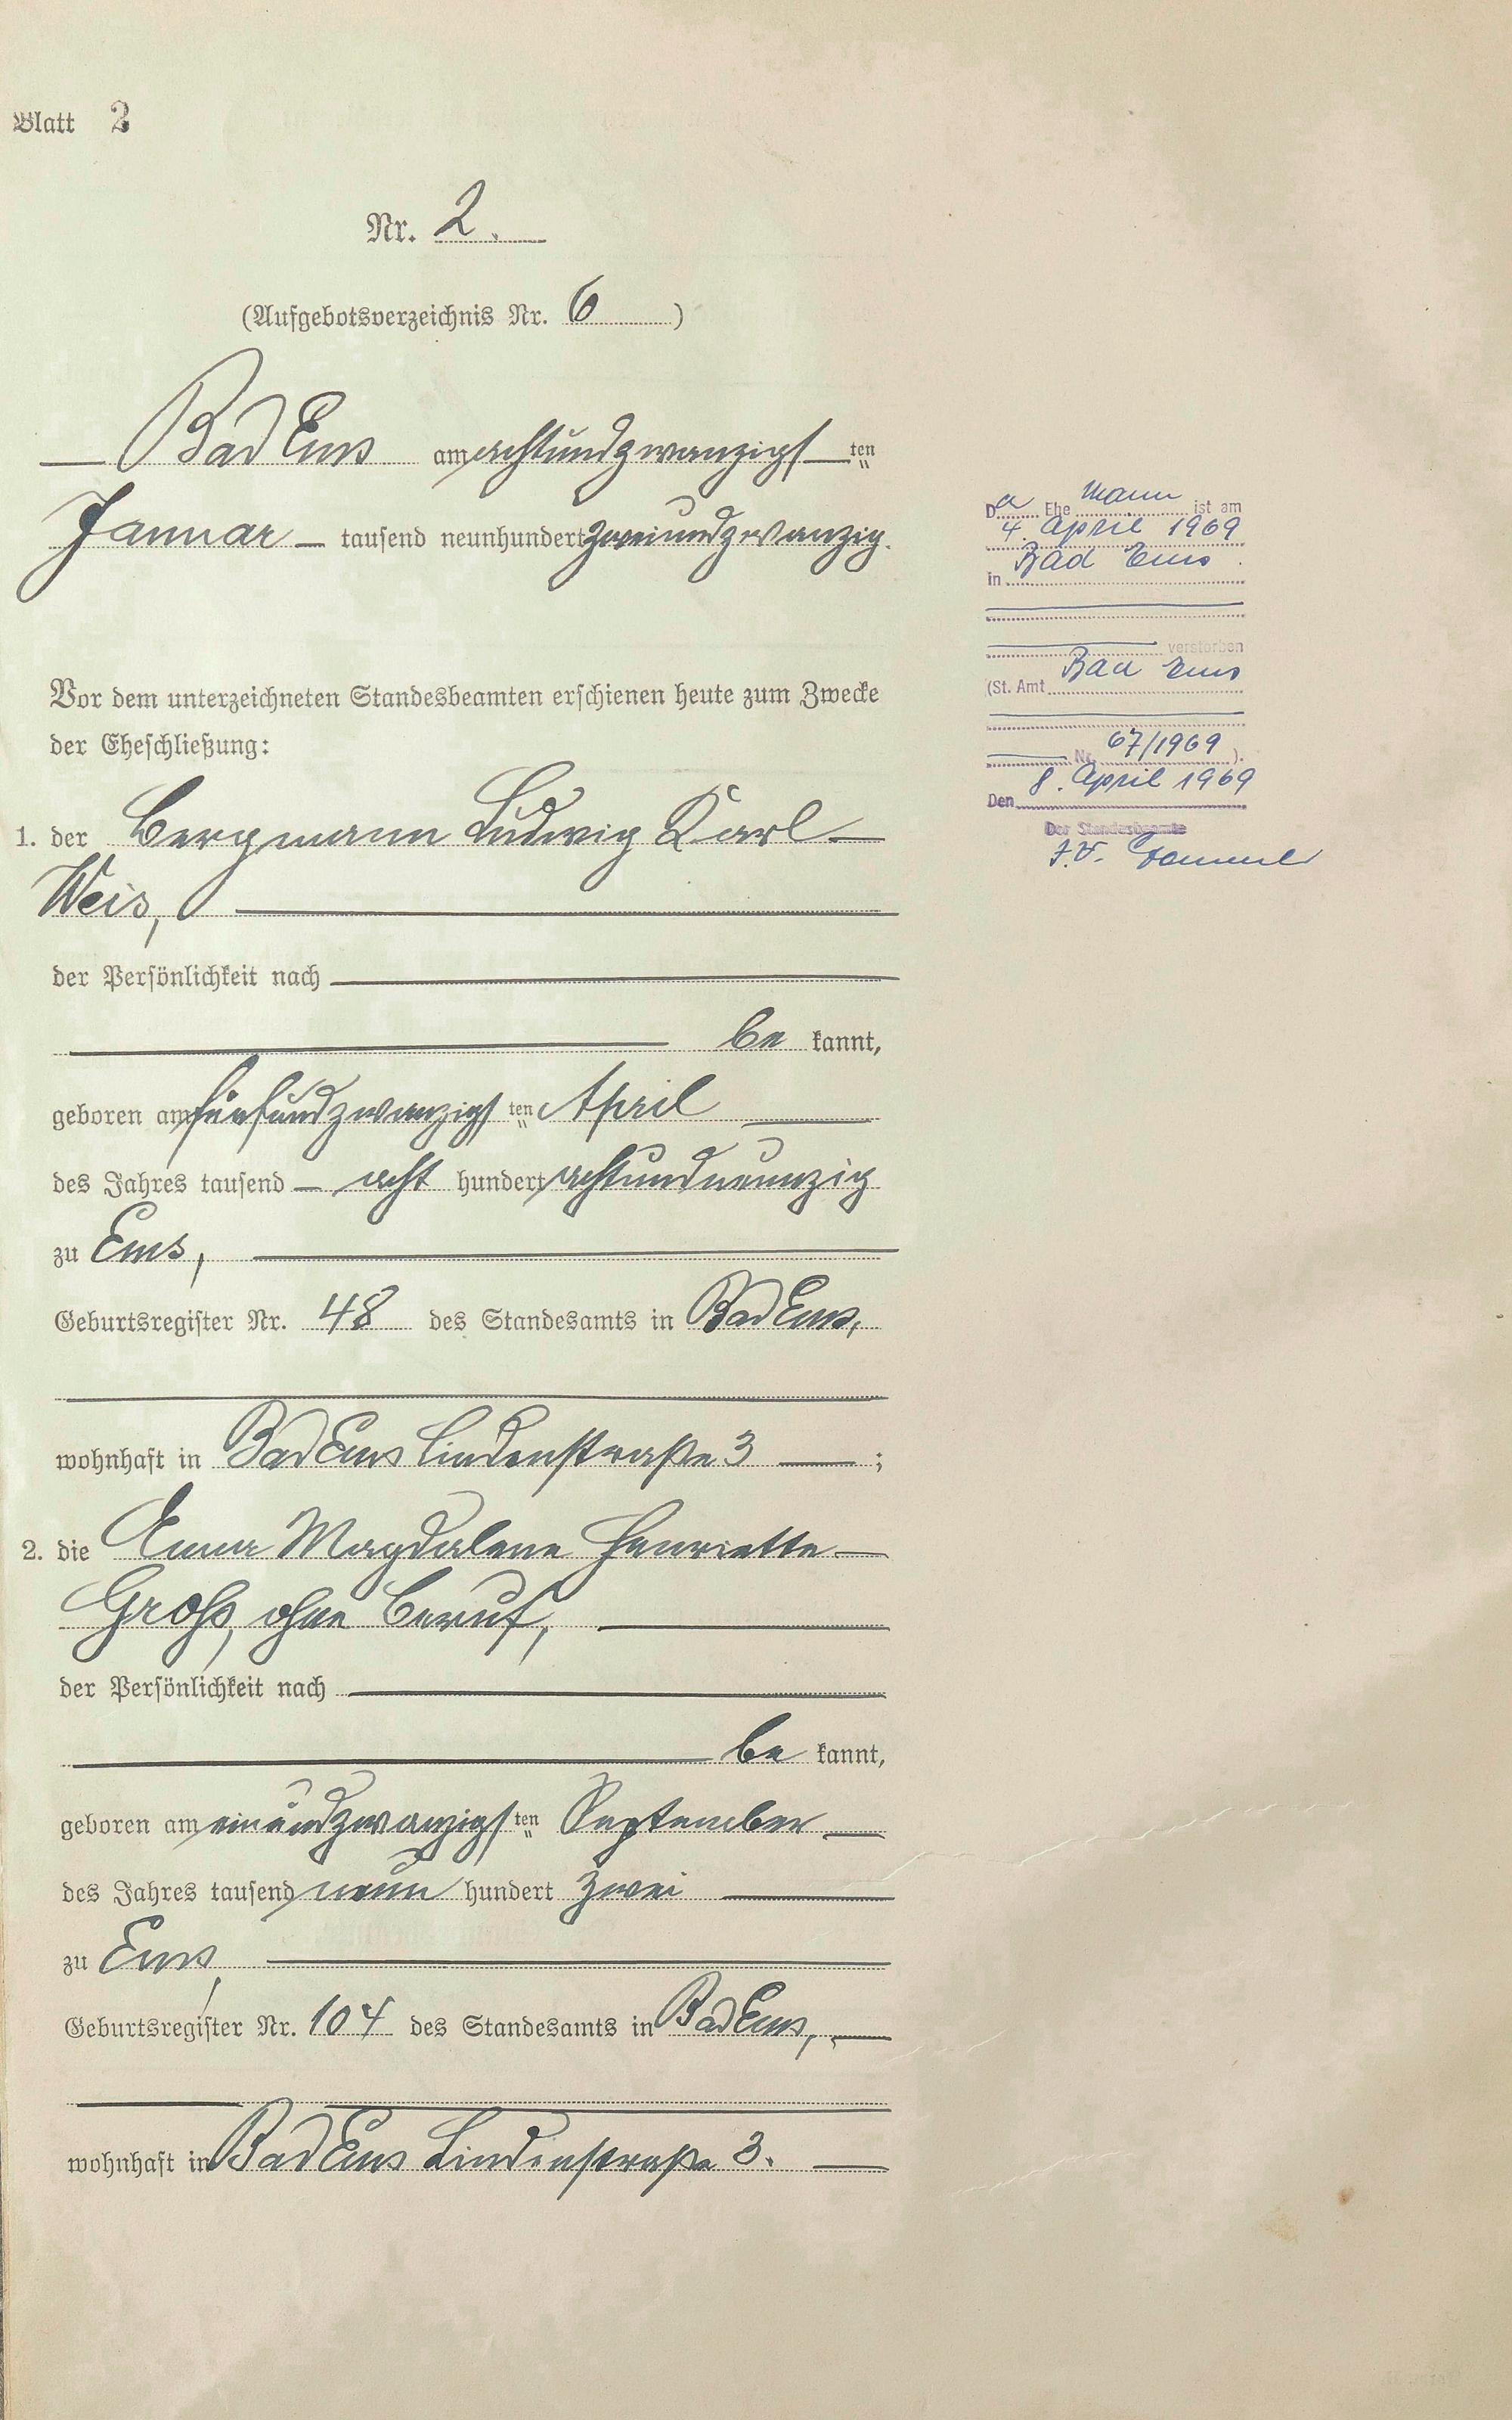 Blatt 2
Nr. 2.
(Aufgebotsverzeichnis Nr. 6)
Bad Ems am achtundzwanzigsten
Januar tausend neunhundert zweiundzwanzig.
Vor dem unterzeichneten Standesbeamten erschienen heute zum Zwecke
der Eheschließung:
1. der Bergmann Ludwig Karl
Weis,
der Persönlichkeit nach
be kannt,
geboren am fünfundzwanzigsten April
des Jahres tausend acht hundert achtundneunzig
zu Ems,
Geburtsregister Nr. 48 des Standesamts in Bad Ems,
wohnhaft in Bad Ems Lindenstraße 3 ;
2. die Magdalene Henriette
Groß, ohne Beruf,
der Persönlichkeit nach
be kannt,
geboren am einundzwanzigsten September
des Jahres tausend neun hundert zwei
zu Ems,
Geburtsregister Nr. 104 des Standesamts in Bad Ems,
wohnhaft in Bad Ems Lindenstraße 3.
D Ehe mann ist am
4. April 1969
in Bad Ems
verstorben
(St. Amt Bad Ems
Nr. 67/1969 ).
Den 8. April 1969
Der Standesbeamte
J.V.